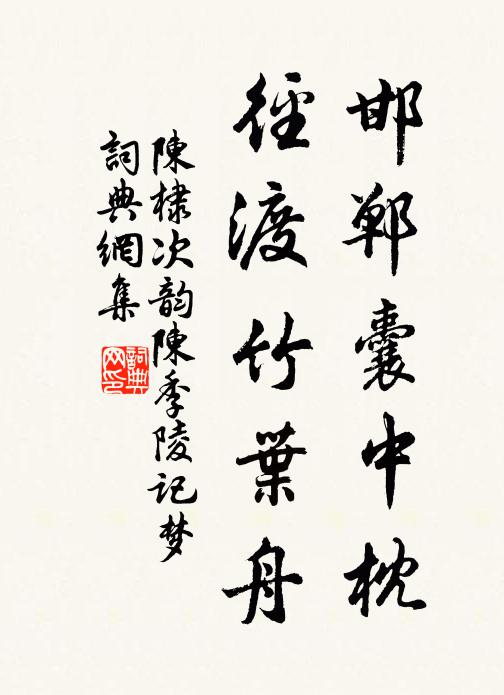 邯鄲囊中枕
徑渡竹葉舟
陳棣次韵陳季陵記梦
詞典網集
詞典网印